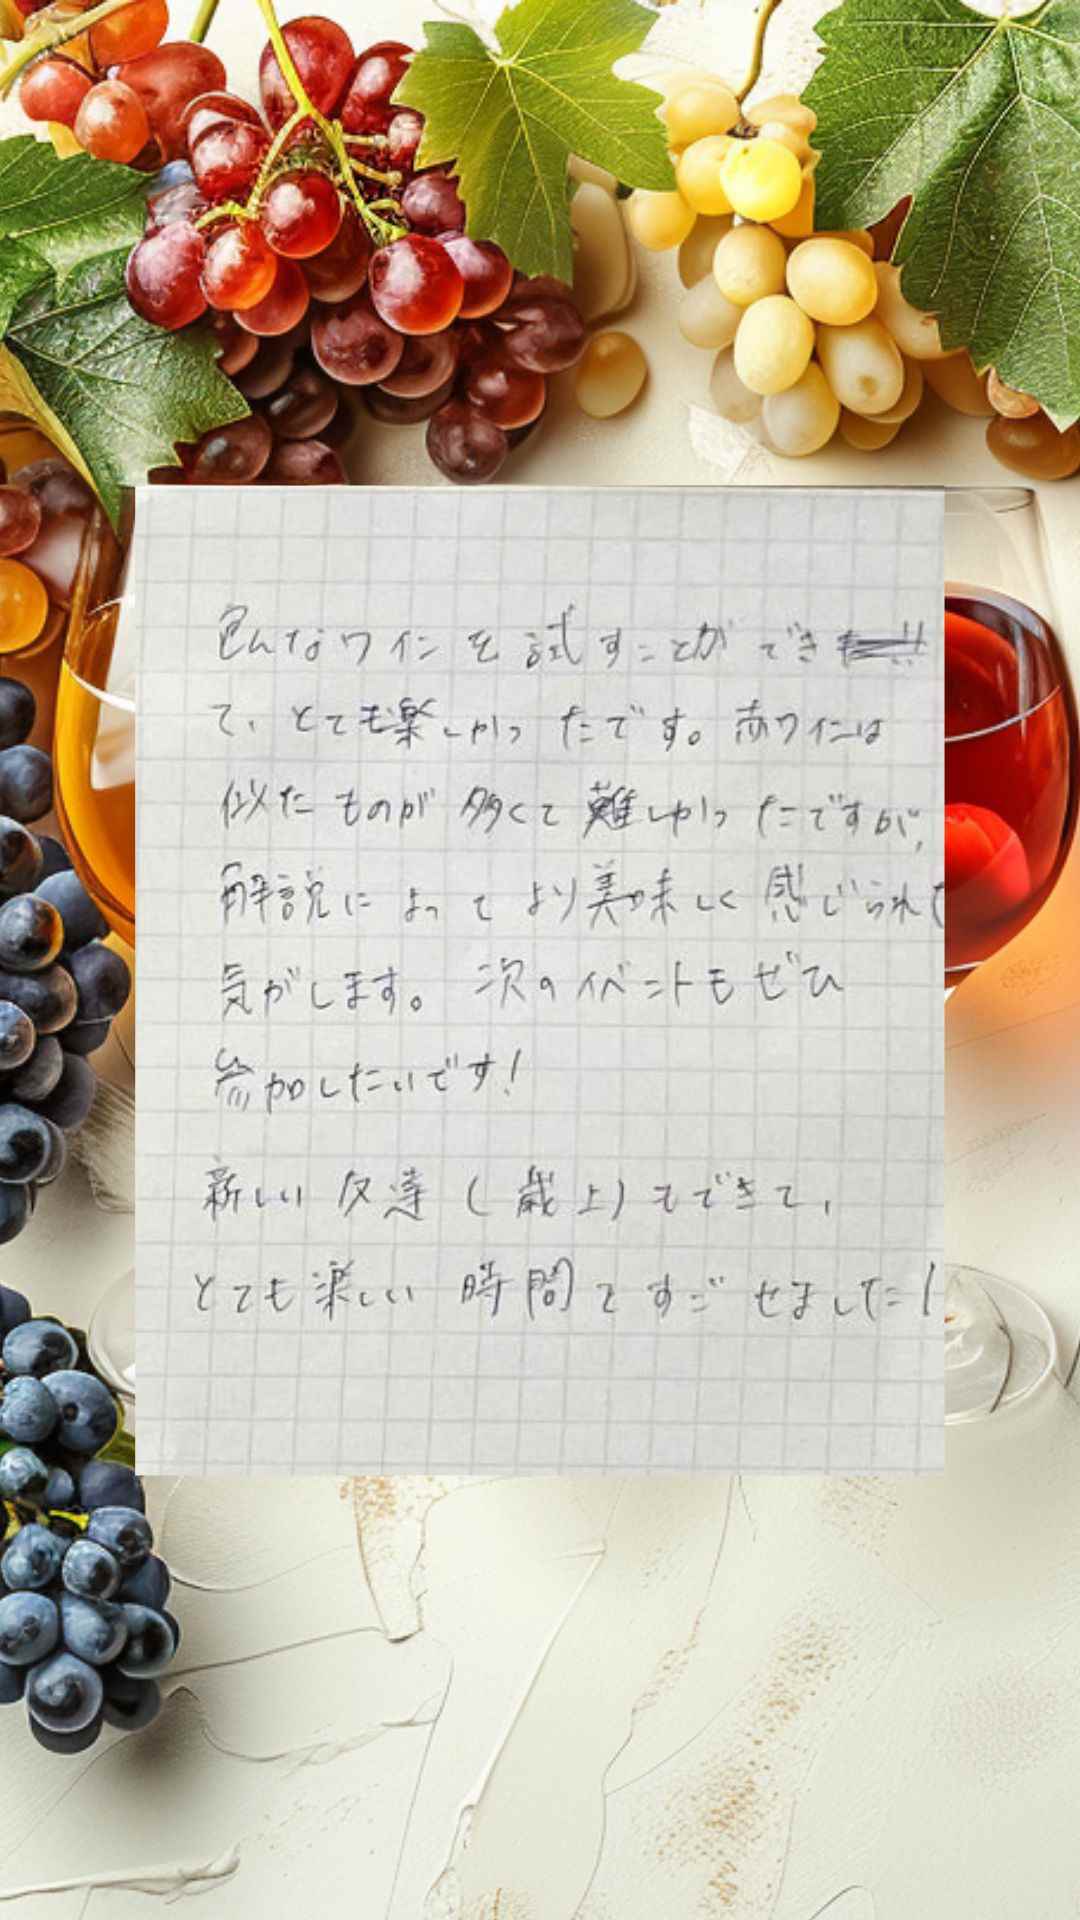 色んなワインを試すことができ
て、とても楽しかったです。赤ワインは
似たものが多くて難しかったですが、
解説によってより美味しく感じられた
気がします。次のイベントもぜひ
参加したいです!
新しい友達(歳上)もできて、
とても楽しい時間てすごせました!